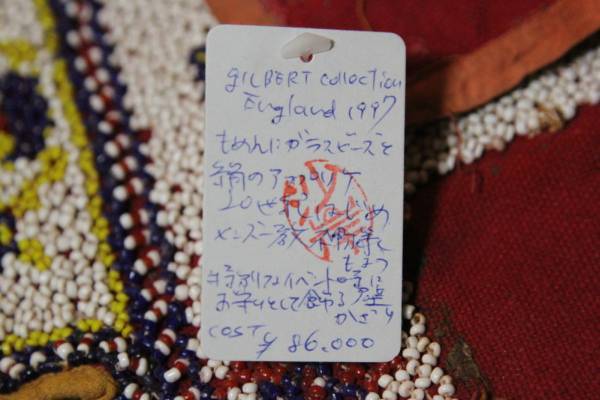 GILBERT collection
England 1997
もめんにガラスビーズと
絹のアップリケ
20世紀はじめ
ビーズ一族
もよう
特別なイベントの時に
お守りとして飾る壁
かざり
COST ¥86.000